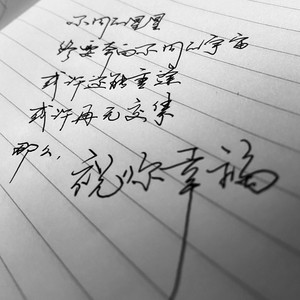 不同的星星
终要奔向不同的宇宙
或许还能重逢
或许再无交集
那么，祝你幸福